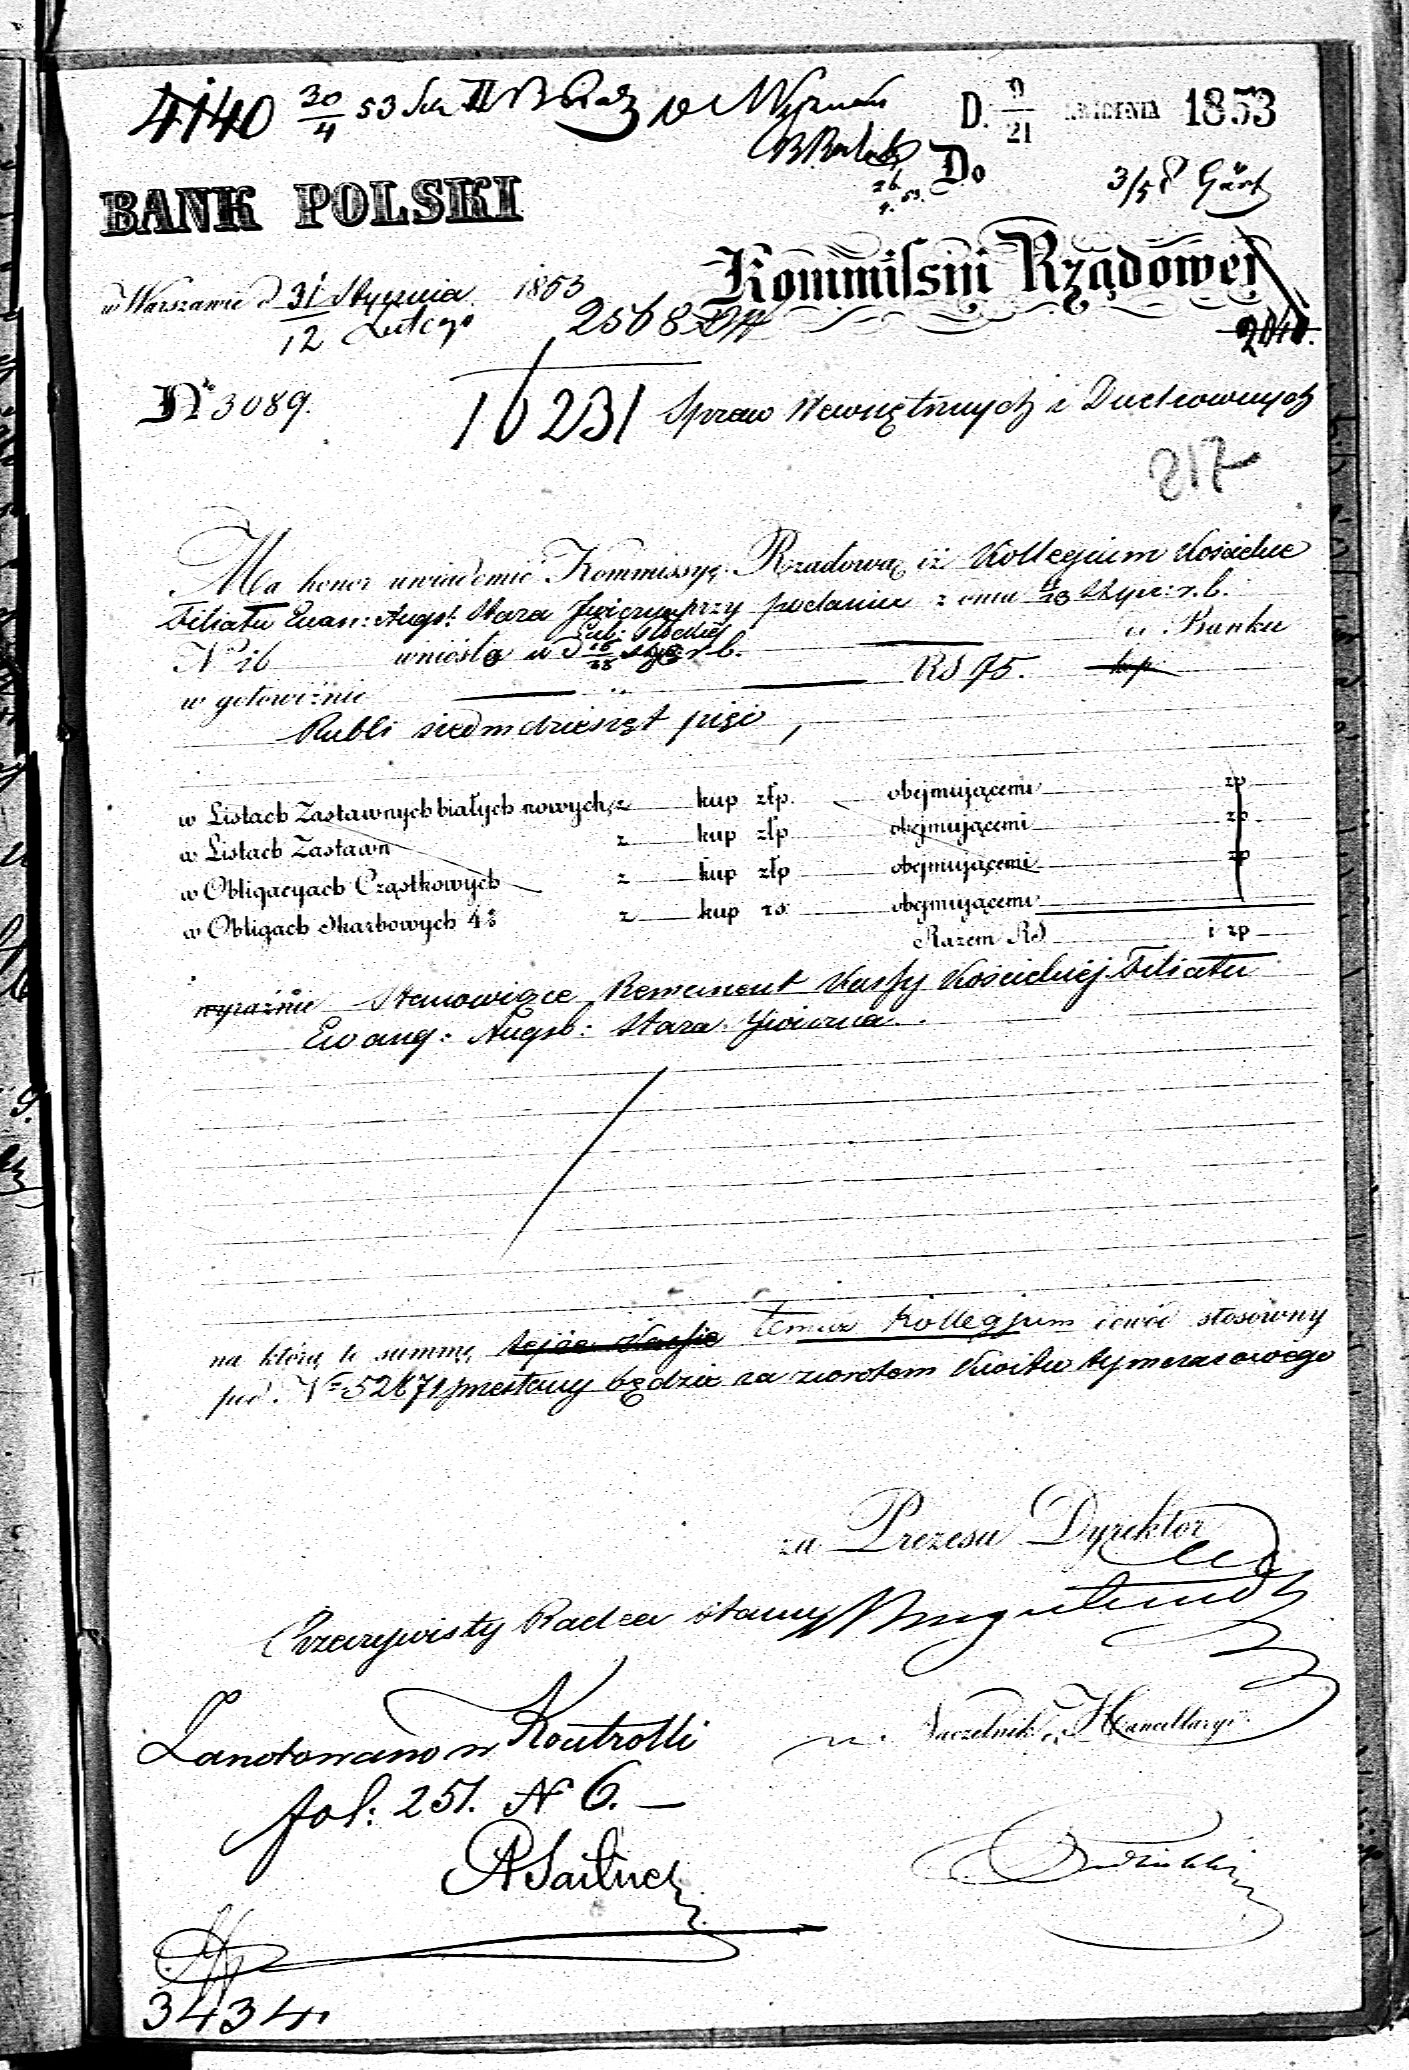 4140 30/4 53 D. 9/21 KWIETNIA 1853
Do 3/5
26/4 53.
BANK POLSKI
Kommissyi Rządowej
w Warszawie d 31 Stycznia 1853
12 Lutego
2568
2040.
No 3089.
16231 Spraw Wewnętrznych i Duchownych
217
Ma honor uwiadomić Kommissyę Rządową iż Kollegium Kościelne
Filiału Ewan: Augs: Stara Jwiczna przy podaniu z dnia 16/28 Stycz: r. b.
Gub:
No 16 wniosło w d 16/28 Stycz r. b. do Banku
w gotowiźnie " RS 75. kp.
Rubli siedmdziesiąt pięć,
w Listach Zastawnych białych nowych, z kup złp. obejmującemi zp
w Listach Zastawn z kup złp obejmującemi zp.
w Obligacyach Cząstkowych z kup złp obejmującemi zp
w Obligach Skarbowych 4% z kup rs obejmującemi
Razem RS i zp
wyraźnie Stanowiące Remanent Kassy Kościelnej Filiału
Ewang: Augsb: Stara Jwiczna.
na którą to summę tejże Kassie temuż Kollegjum dowód stosowny
pod No 52871 przesłany będzie za zwrotem Kwitu tymczasowego
za Prezesa Dyrektor
Rzeczywisty Radca Stanu
Zanotowano w Kontrolli
fol: 251. N 6.
w. Naczelnik Kancellaryi
3434.